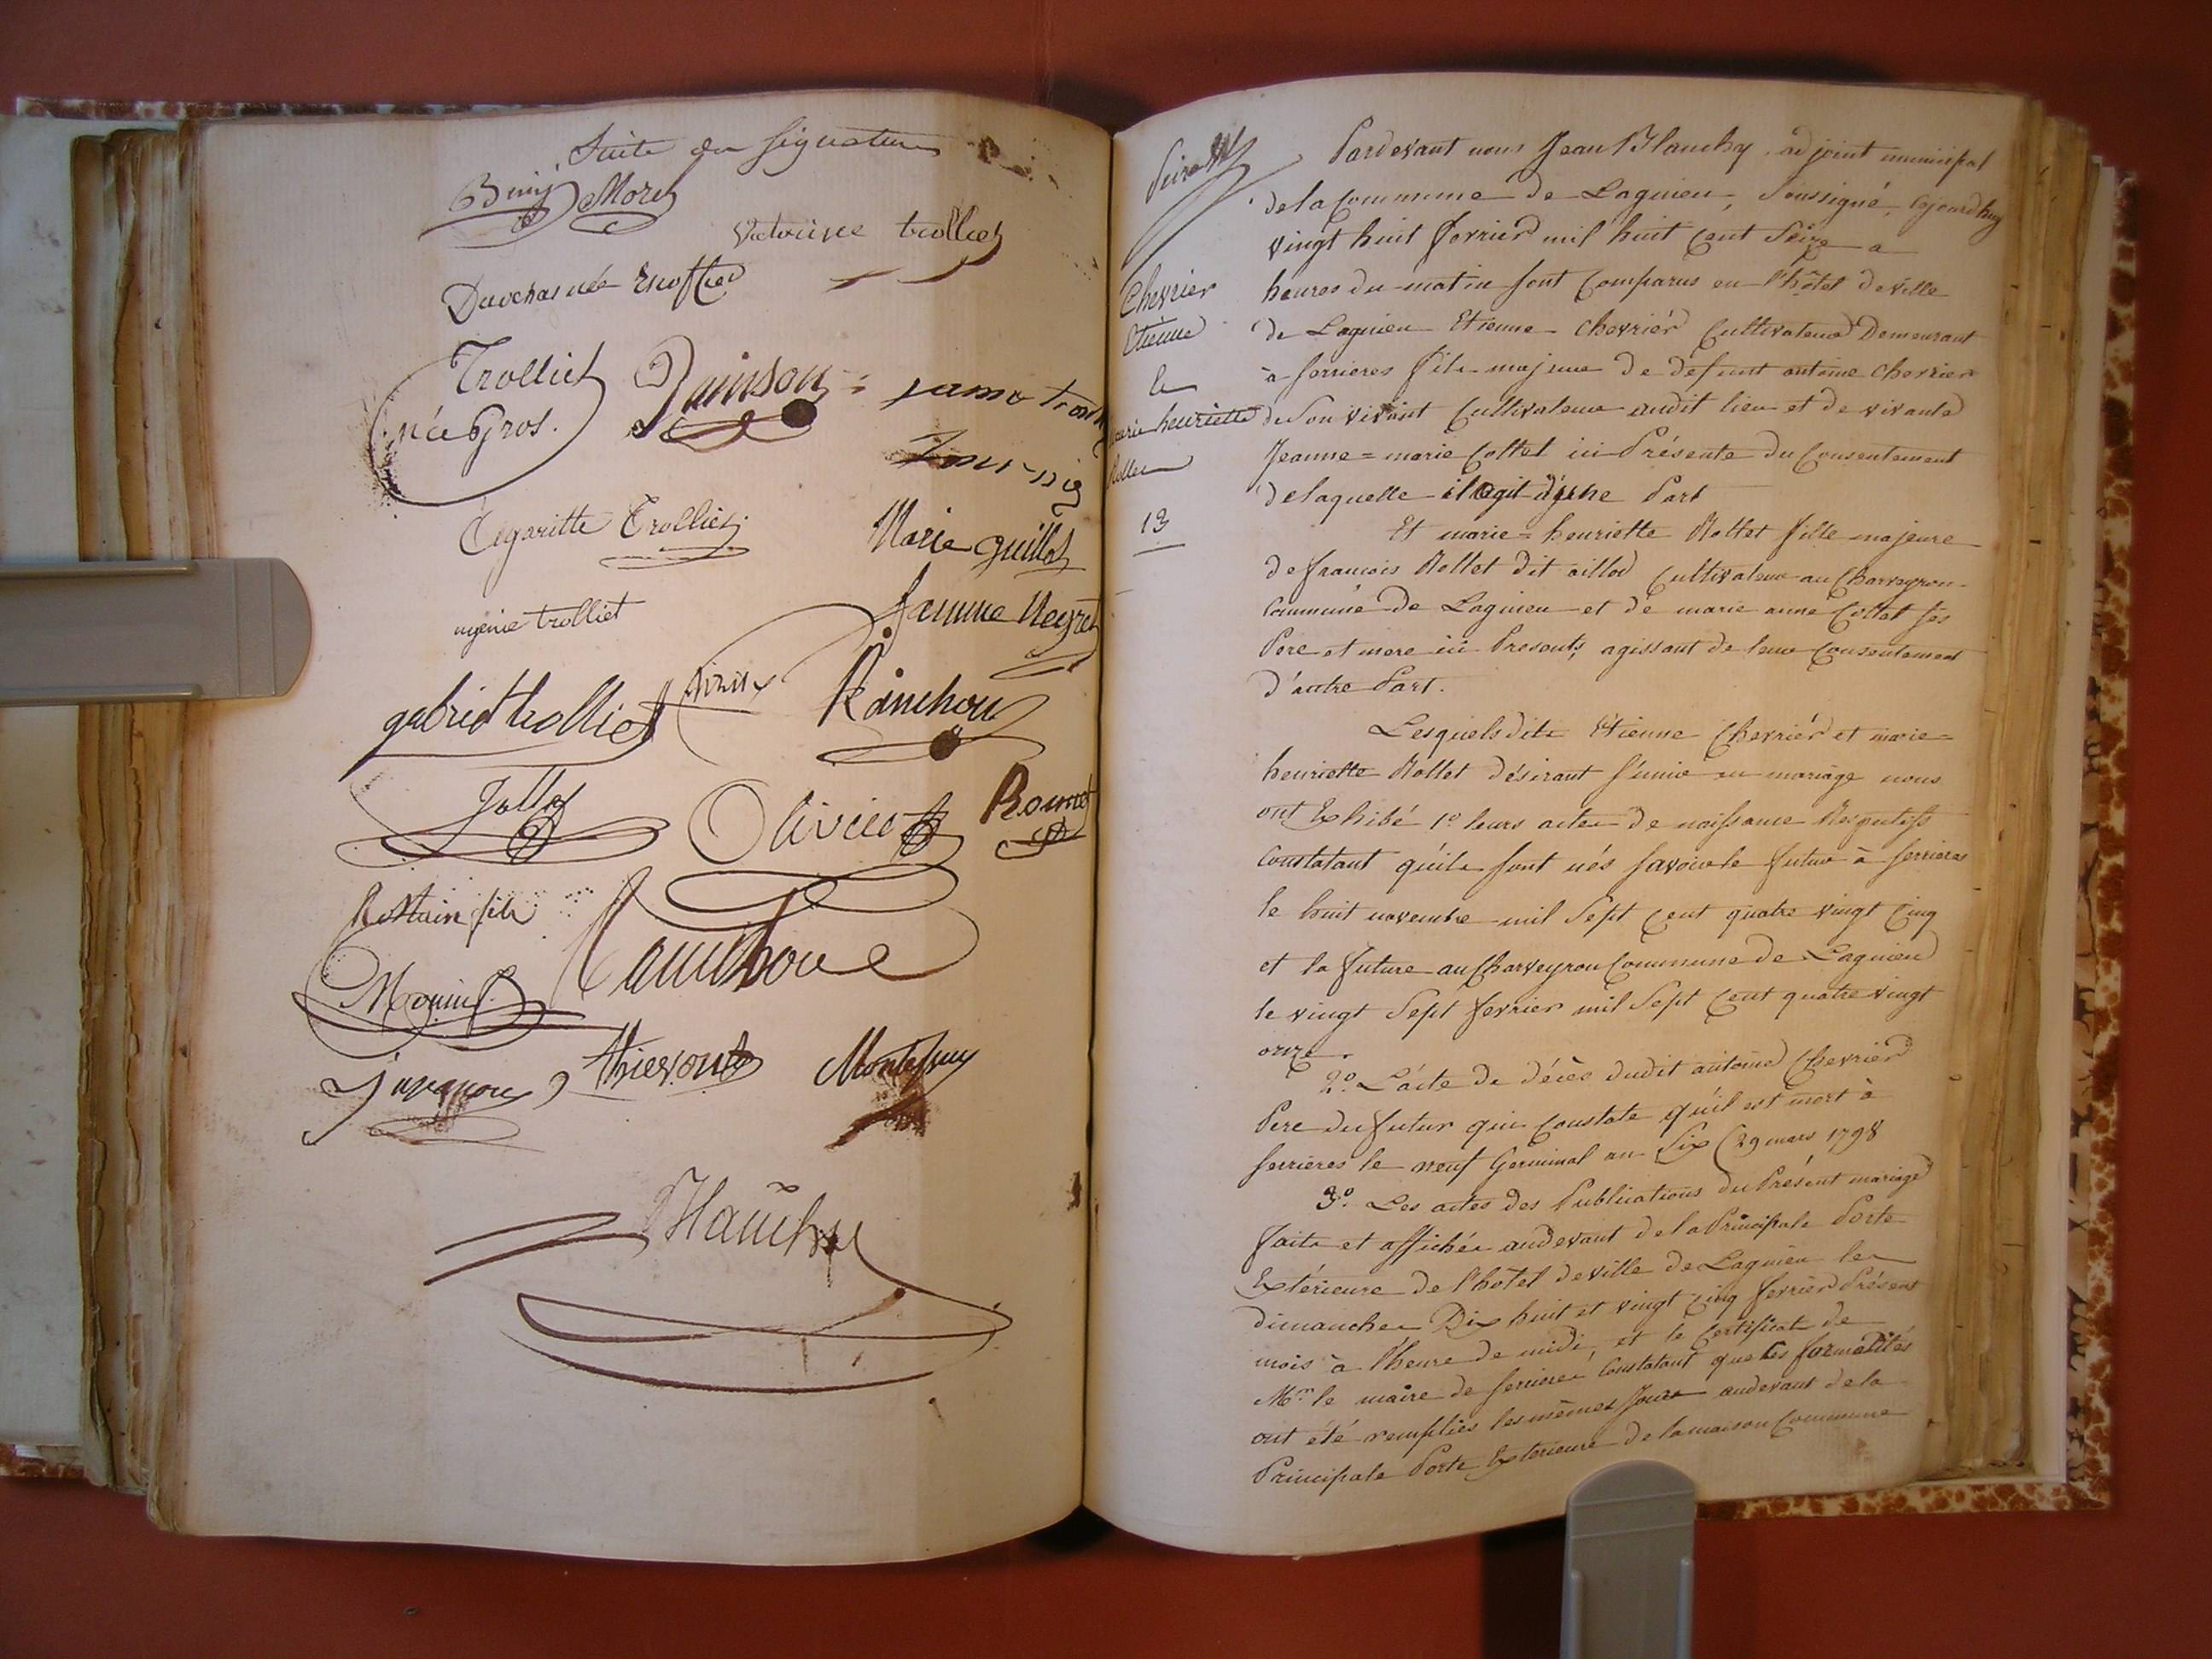 Suite des signatures
Buny Morel
Victorine trolliet
Duvchasnel Escoffier
Trolliet
née Gros.
Marie guillot
Trolliet
femme Neyret
ugénie trolliet
gabriel trolliet
Ranchon
Jullaf
Olivier
Bonnet
Rostain fils
Monin
Thievont
Montessuy
Blanchy
Pardevant nous Jean Blanchy, adjoint municipal
de la commune de Lagnieu, soussigné, Cejourdhuy
vingt huit fevrier mil huit cent Seize a
Chevrier
heures du matin sont Comparus en l'hôtel deville
Etienne
de Lagnieu Etienne Chevrier Cultivateur Demeurant
&
à serrieres fils majeur de defunt antoine chevrier
marie henriette
de Son vivant Cultivateur audit lieu et de vivante
Rollet
Jeanne = marie Cottet ici Présente du Consentement
delaquelle il agit d'une Part
13
Et marie = henriette Rollet fille majeure
de francois Rollet dit aillod Cultivateur au Charveyron
Commune de Lagnieu et de marie anne Cottet ses
Pere et mere ici Presents, agissant de leur Consentement
d'autre Part.
Lesquels dits Etienne Chevrier et marie =
henriette Rollet désirant s'unir en mariage nous
ont Exhibé 1º leurs actes de naissance Respectifs
Constatant qu'ils sont nés savoir le futur à serrieres
le huit novembre mil Sept cent quatre vingt Cinq
et la future au Charveyron Commune de Lagnieu
le vingt Sept fevrier mil Sept cent quatre vingt
onze.
2º. L'acte de décès dudit antoine Chevrier
Pere du futur qui Constate qu'il est mort à
serrieres le neuf Germinal an Six (29 mars 1798
3º. Les actes des Publications du Présent mariage
faits et affichés audevant de la Principale Porte
Extérieure de l'hôtel deville de Lagnieu les
dimanches Dix huit et vingt Cinq fevrier Présent
mois à l'heure de midi, et le Certificat de
Mr. le maire de serrieres Constatant que les formalités
ont été remplies les mêmes Jours audevant de la
Principale Porte Exterieure de la maison Commune